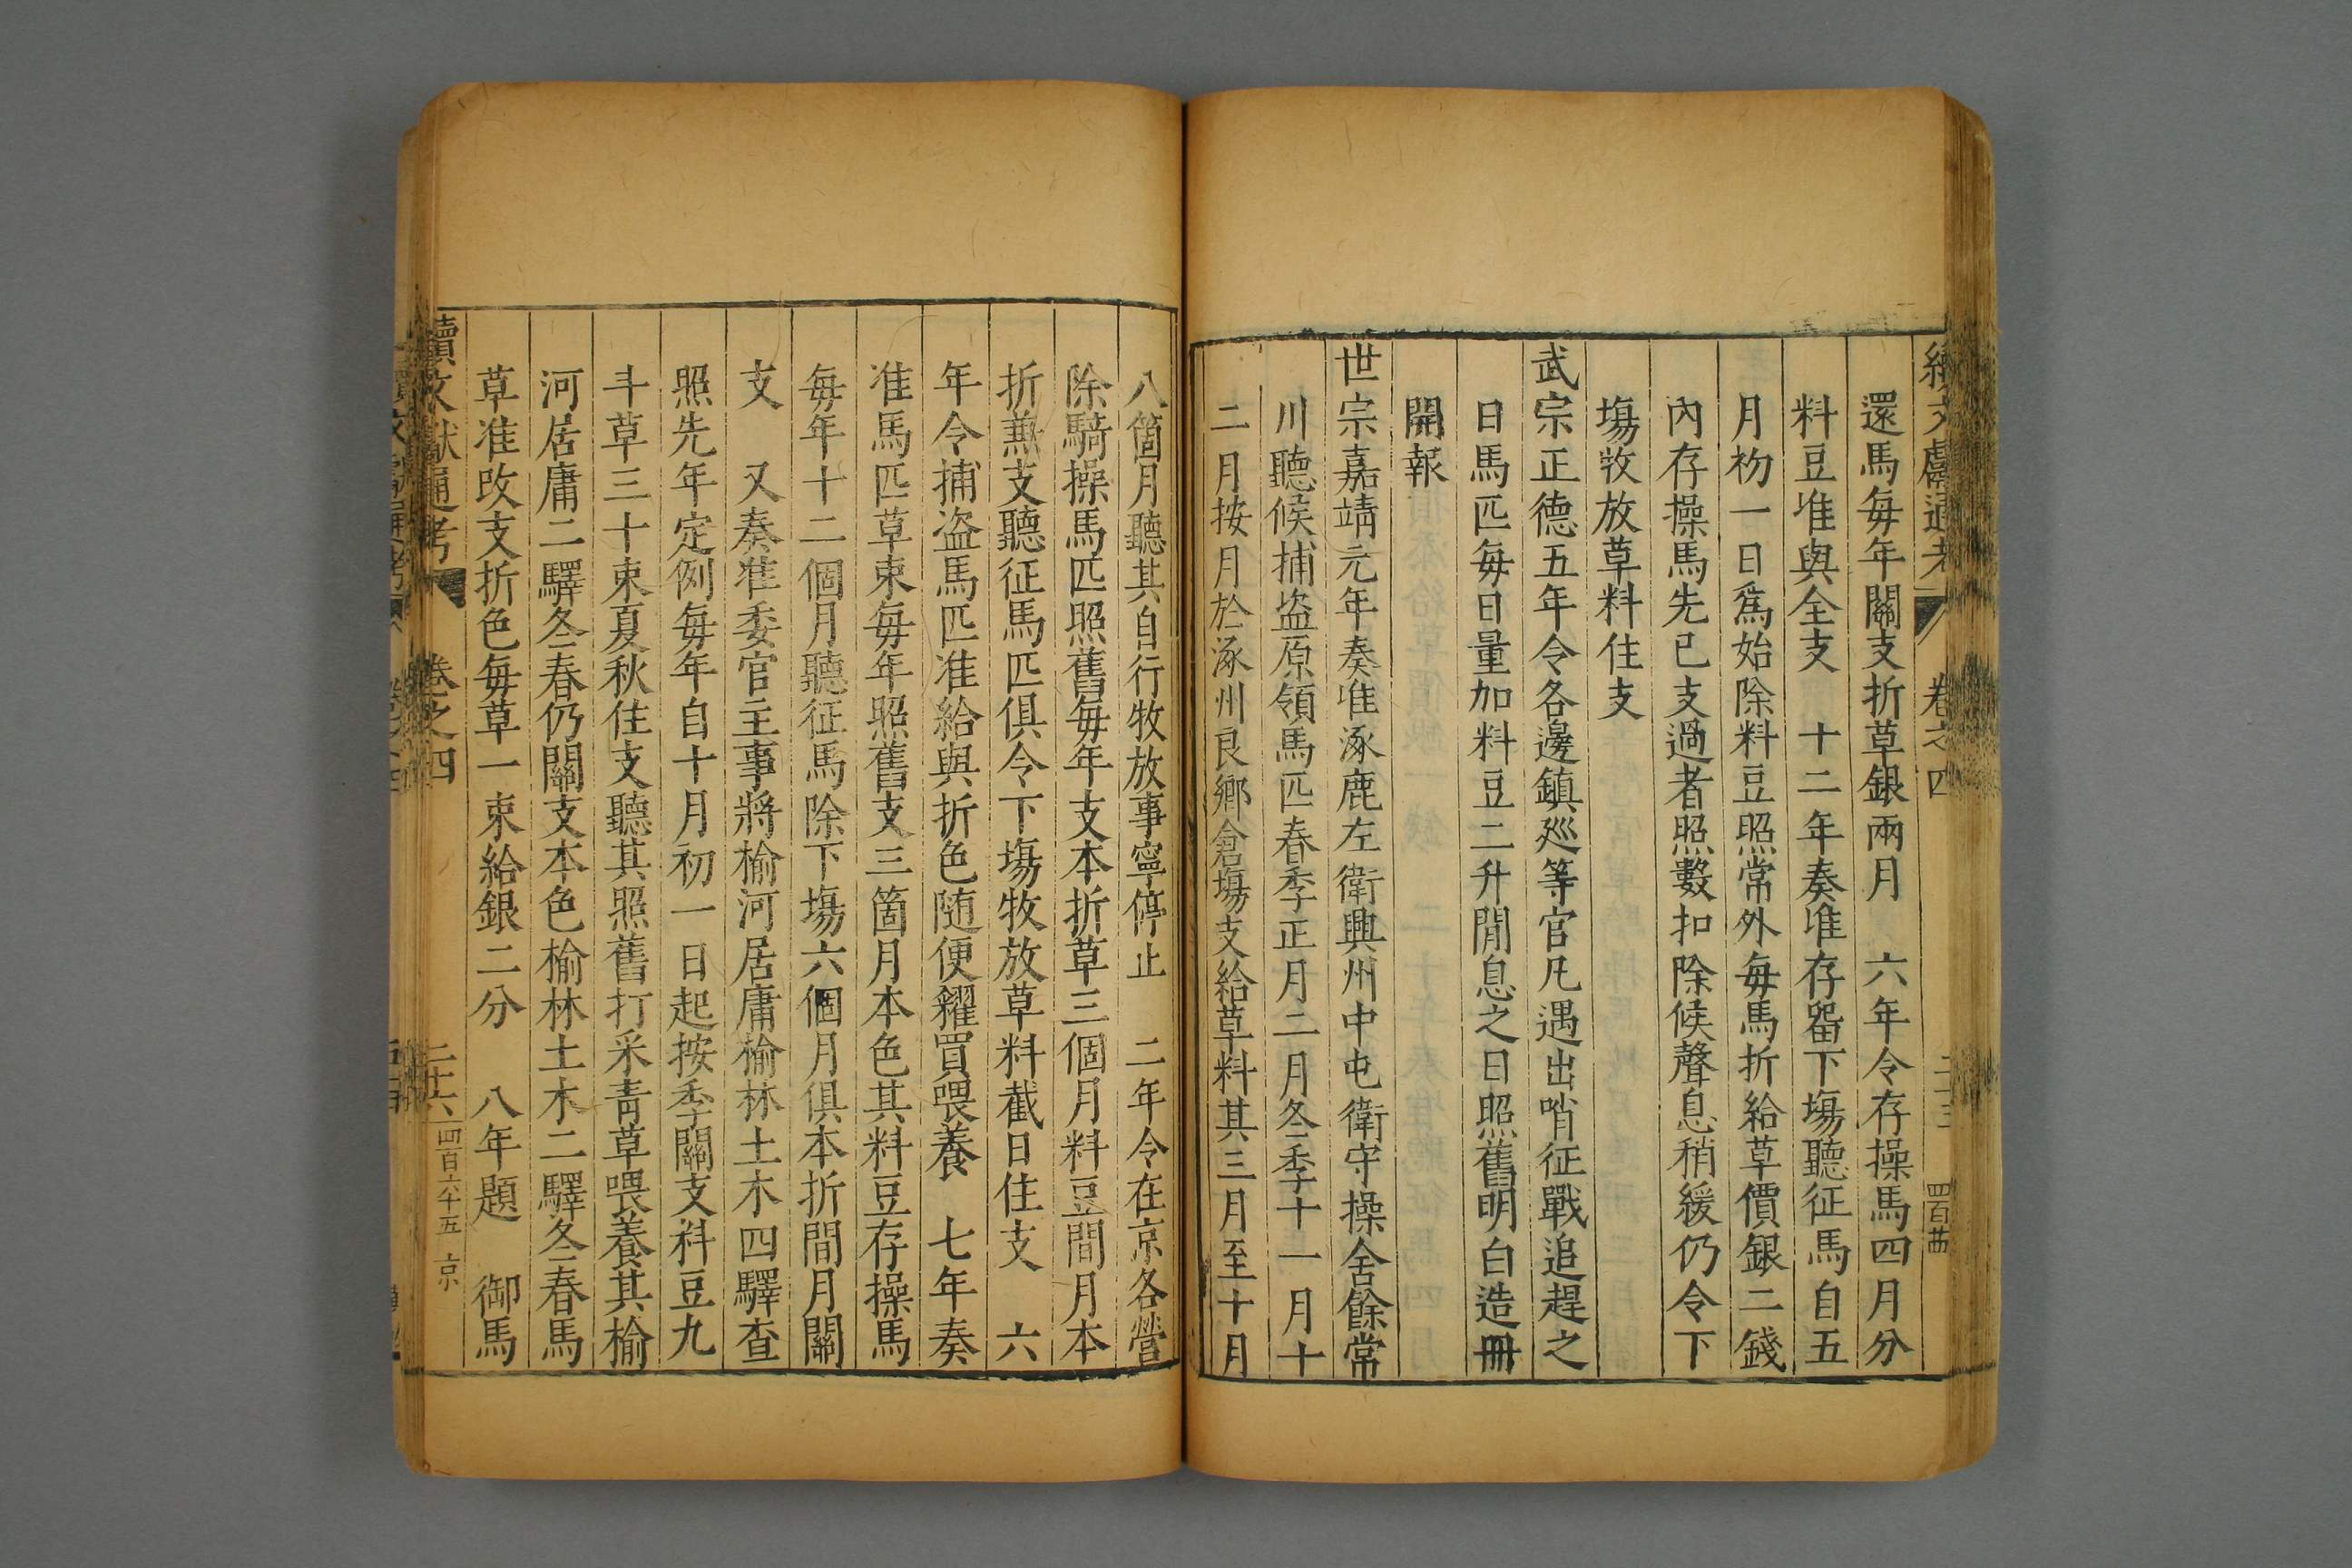 還馬每年關支折草銀兩月　六年令存操馬四月分
料豆准與全支　十二年奏准存畱下塲聽征馬自五
月初一日爲始除料豆照常外每馬折給草價銀二錢
內存操馬先已支過者照數扣除候聲息稍緩仍令下
塲牧放草料住支
武宗正德五年令各邊鎮廵等官凡遇出哨征戰追趕之
日馬匹每日量加料豆二升閒息之日照舊明白造冊
開報
世宗嘉靖元年奏准涿鹿左衛興州中屯衛守操舍餘常
川聽候捕盗原領馬匹春季正月二月冬季十一月十
二月按月於涿州良鄉倉塲支給草料其三月至十月
八箇月聽其自行牧放事寧停止　二年令在京各營
除騎操馬匹照舊每年支本折草三個月料豆間月本
折兼支聽征馬匹俱令下塲牧放草料截日住支　六
年令捕盗馬匹准給與折色随便糴買喂養　七年奏
准馬匹草束每年照舊支三箇月本色其料豆存操馬
每年十二個月聽征馬除下塲六個月俱本折間月關
支　又奏准委官主事將榆河居庸榆林土木四驛查
照先年定例每年自十月初一日起按季關支料豆九
斗草三十束夏秋住支聽其照舊打采青草喂養其榆
河居庸二驛冬春仍關支本色榆林土木二驛冬春馬
草准改支折色每草一束給銀二分　八年題　御馬
續文獻通考　卷之四　二十六　四百六十五　京